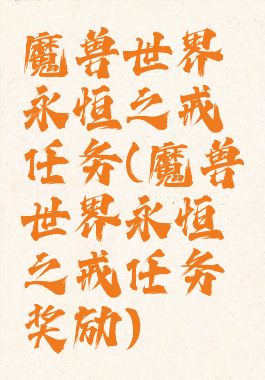 魔兽世界
永恒之戒
任务(魔兽
世界永恒
之戒任务
奖励)